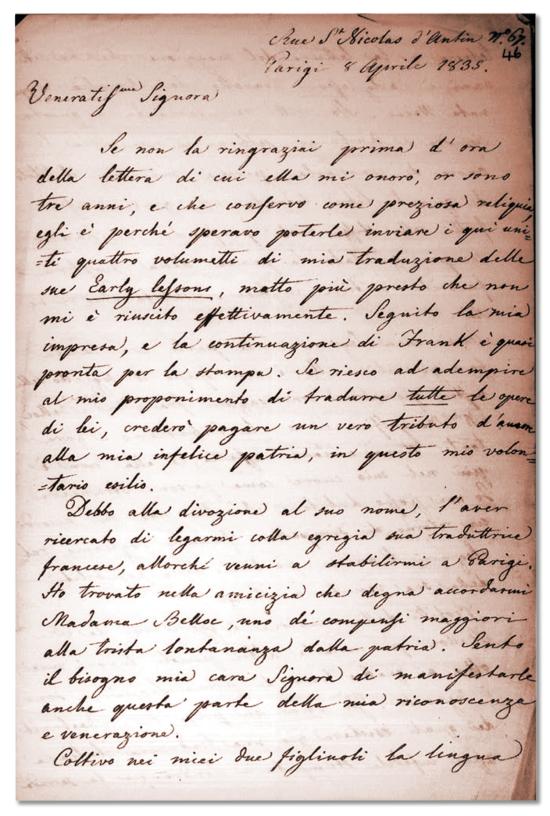 Rue S.t Nicolas d'Antin n.o 67.
46
Parigi 8 Aprile 1835.
Veneratissma Signora
Se non la ringraziai prima d'ora
della lettera di cui ella mi onorò, or sono
tre anni, e che conservo come preziosa reliquia,
egli è perché speravo poterle inviare i quì uni=
=ti quattro volumetti di mia traduzione delle
sue Early lessons, molto più presto che non
mi è riuscito effettivamente. Seguito la mia
impresa, e la continuazione di Frank è quasi
pronta per la stampa. Se riesco ad adempire
al mio proponimento di tradurre tutte le opere
di lei, crederò pagare un vero tributo d'amore
alla mia infelice patria, in questo mio volon=
=tario esilio.
Debbo alla divozione al suo nome, l'aver
ricercato di legarmi colla egregia sua traduttrice
francese, allorché venni a stabilirmi a Parigi.
Ho trovato nella amicizia che degna accordarmi
Madama Belloc, uno dé compensi maggiori
alla trista lontananza dalla patria. Sento
il bisogno mia cara Signora di manifestarle
anche questa parte della mia riconoscenza
e venerazione.
Coltivo nei miei due figliuoli la lingua